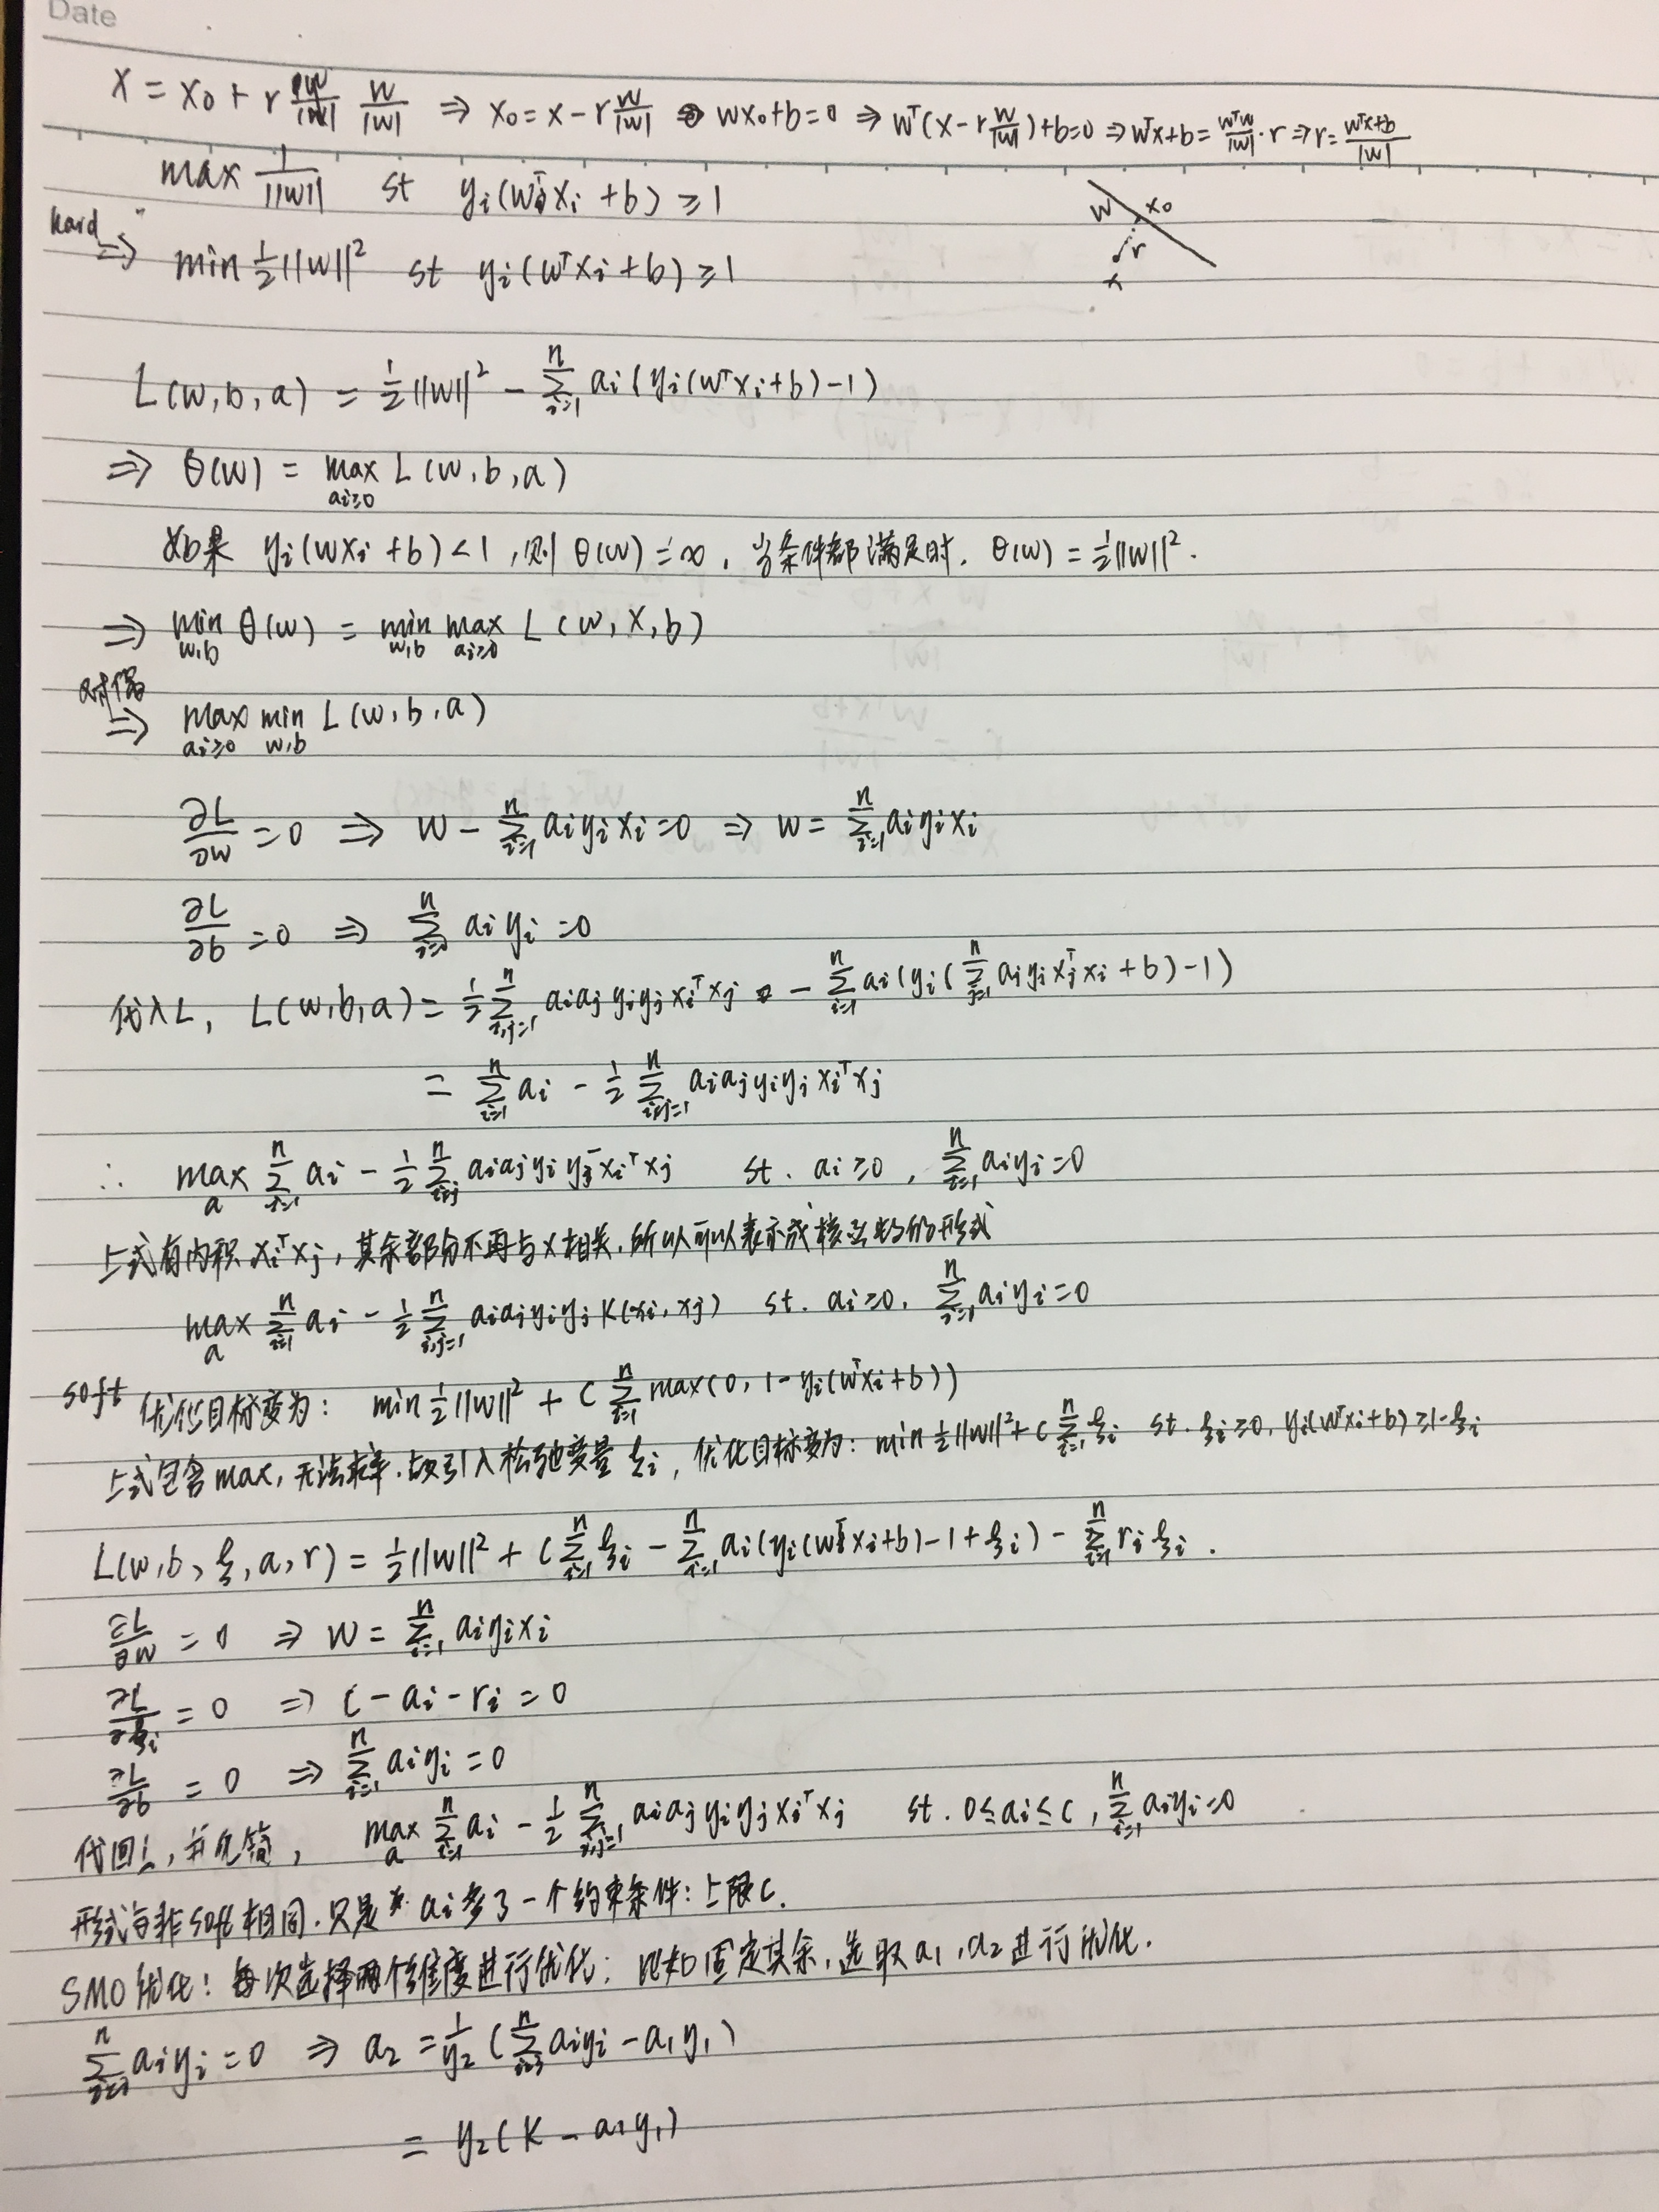 Date
X = x₀ + r w/|w| ⇒ x₀ = x - r w/|w| ⇒ wx₀+b=0 ⇒ wᵀ(x - r w/|w|)+b=0 ⇒ wᵀx+b = wᵀw/|w| · r ⇒ r = wᵀx+b/|w|
max 1/||w|| st yᵢ(wᵀxᵢ + b) ≥ 1
W x₀ r x
hard ⇒ min ½||w||² st yᵢ(wᵀxᵢ + b) ≥ 1
L(w,b,a) = ½||w||² - Σⁿᵢ₌₁ aᵢ(yᵢ(wᵀxᵢ+b)-1)
⇒ θ(w) = max_{aᵢ≥0} L(w,b,a)
如果 yᵢ(wxᵢ+b)<1, 则 θ(w)=∞, 当条件都满足时. θ(w) = ½||w||².
⇒ min_{w,b} θ(w) = min_{w,b} max_{aᵢ≥0} L(w,x,b)
对偶 ⇒ max_{aᵢ≥0} min_{w,b} L(w,b,a)
∂L/∂w = 0 ⇒ w - Σⁿᵢ₌₁ aᵢyᵢxᵢ=0 ⇒ w = Σⁿᵢ₌₁ aᵢyᵢxᵢ
∂L/∂b = 0 ⇒ Σⁿ aᵢyᵢ = 0
代入L, L(w,b,a) = ½Σⁿᵢ,ⱼ₌₁ aᵢaⱼyᵢyⱼxᵢᵀxⱼ - Σⁿᵢ₌₁ aᵢ(yᵢ(Σⁿⱼ₌₁ aⱼyⱼxⱼᵀxᵢ+b)-1)
= Σⁿᵢ₌₁ aᵢ - ½ Σⁿᵢ,ⱼ₌₁ aᵢaⱼyᵢyⱼxᵢᵀxⱼ
∴ max_a Σⁿᵢ₌₁ aᵢ - ½ Σⁿᵢ,ⱼ aᵢaⱼyᵢyⱼxᵢᵀxⱼ st. aᵢ≥0, Σⁿᵢ₌₁ aᵢyᵢ=0
上式有内积 xᵢᵀxⱼ, 其余部分不再与x相关, 所以可以表示成核函数的形式
max_a Σⁿᵢ₌₁ aᵢ - ½ Σⁿᵢ,ⱼ₌₁ aᵢaⱼyᵢyⱼK(xᵢ,xⱼ) st. aᵢ≥0, Σⁿᵢ₌₁ aᵢyᵢ=0
soft 优化目标变为: min ½||w||² + C Σⁿᵢ₌₁ max(0, 1-yᵢ(wᵀxᵢ+b))
上式包含max, 无法求率, 故引入松弛变量 ξᵢ, 优化目标变为: min ½||w||²+C Σⁿᵢ₌₁ ξᵢ st. ξᵢ≥0, yᵢ(wᵀxᵢ+b)≥1-ξᵢ
L(w,b,ξ,a,r) = ½||w||² + C Σⁿᵢ₌₁ ξᵢ - Σⁿᵢ₌₁ aᵢ(yᵢ(wᵀxᵢ+b)-1+ξᵢ) - Σⁿᵢ₌₁ rᵢξᵢ.
∂L/∂w = 0 ⇒ w = Σⁿᵢ₌₁ aᵢyᵢxᵢ
∂L/∂ξᵢ = 0 ⇒ C - aᵢ - rᵢ = 0
∂L/∂b = 0 ⇒ Σⁿᵢ₌₁ aᵢyᵢ = 0
代回L, 并化简, max_a Σⁿᵢ₌₁ aᵢ - ½ Σⁿᵢ,ⱼ₌₁ aᵢaⱼyᵢyⱼxᵢᵀxⱼ st. 0≤aᵢ≤C, Σⁿᵢ₌₁ aᵢyᵢ=0
形式与非soft相同, 只是 aᵢ多了一个约束条件: 上限C.
SMO优化: 每次选择两个维度进行优化, 比如固定其余, 选取a₁,a₂进行优化.
Σⁿᵢ₌₁ aᵢyᵢ = 0 ⇒ a₂ = 1/y₂ (Σⁿᵢ₌₃ aᵢyᵢ - a₁y₁)
= y₂(K - a₁y₁)